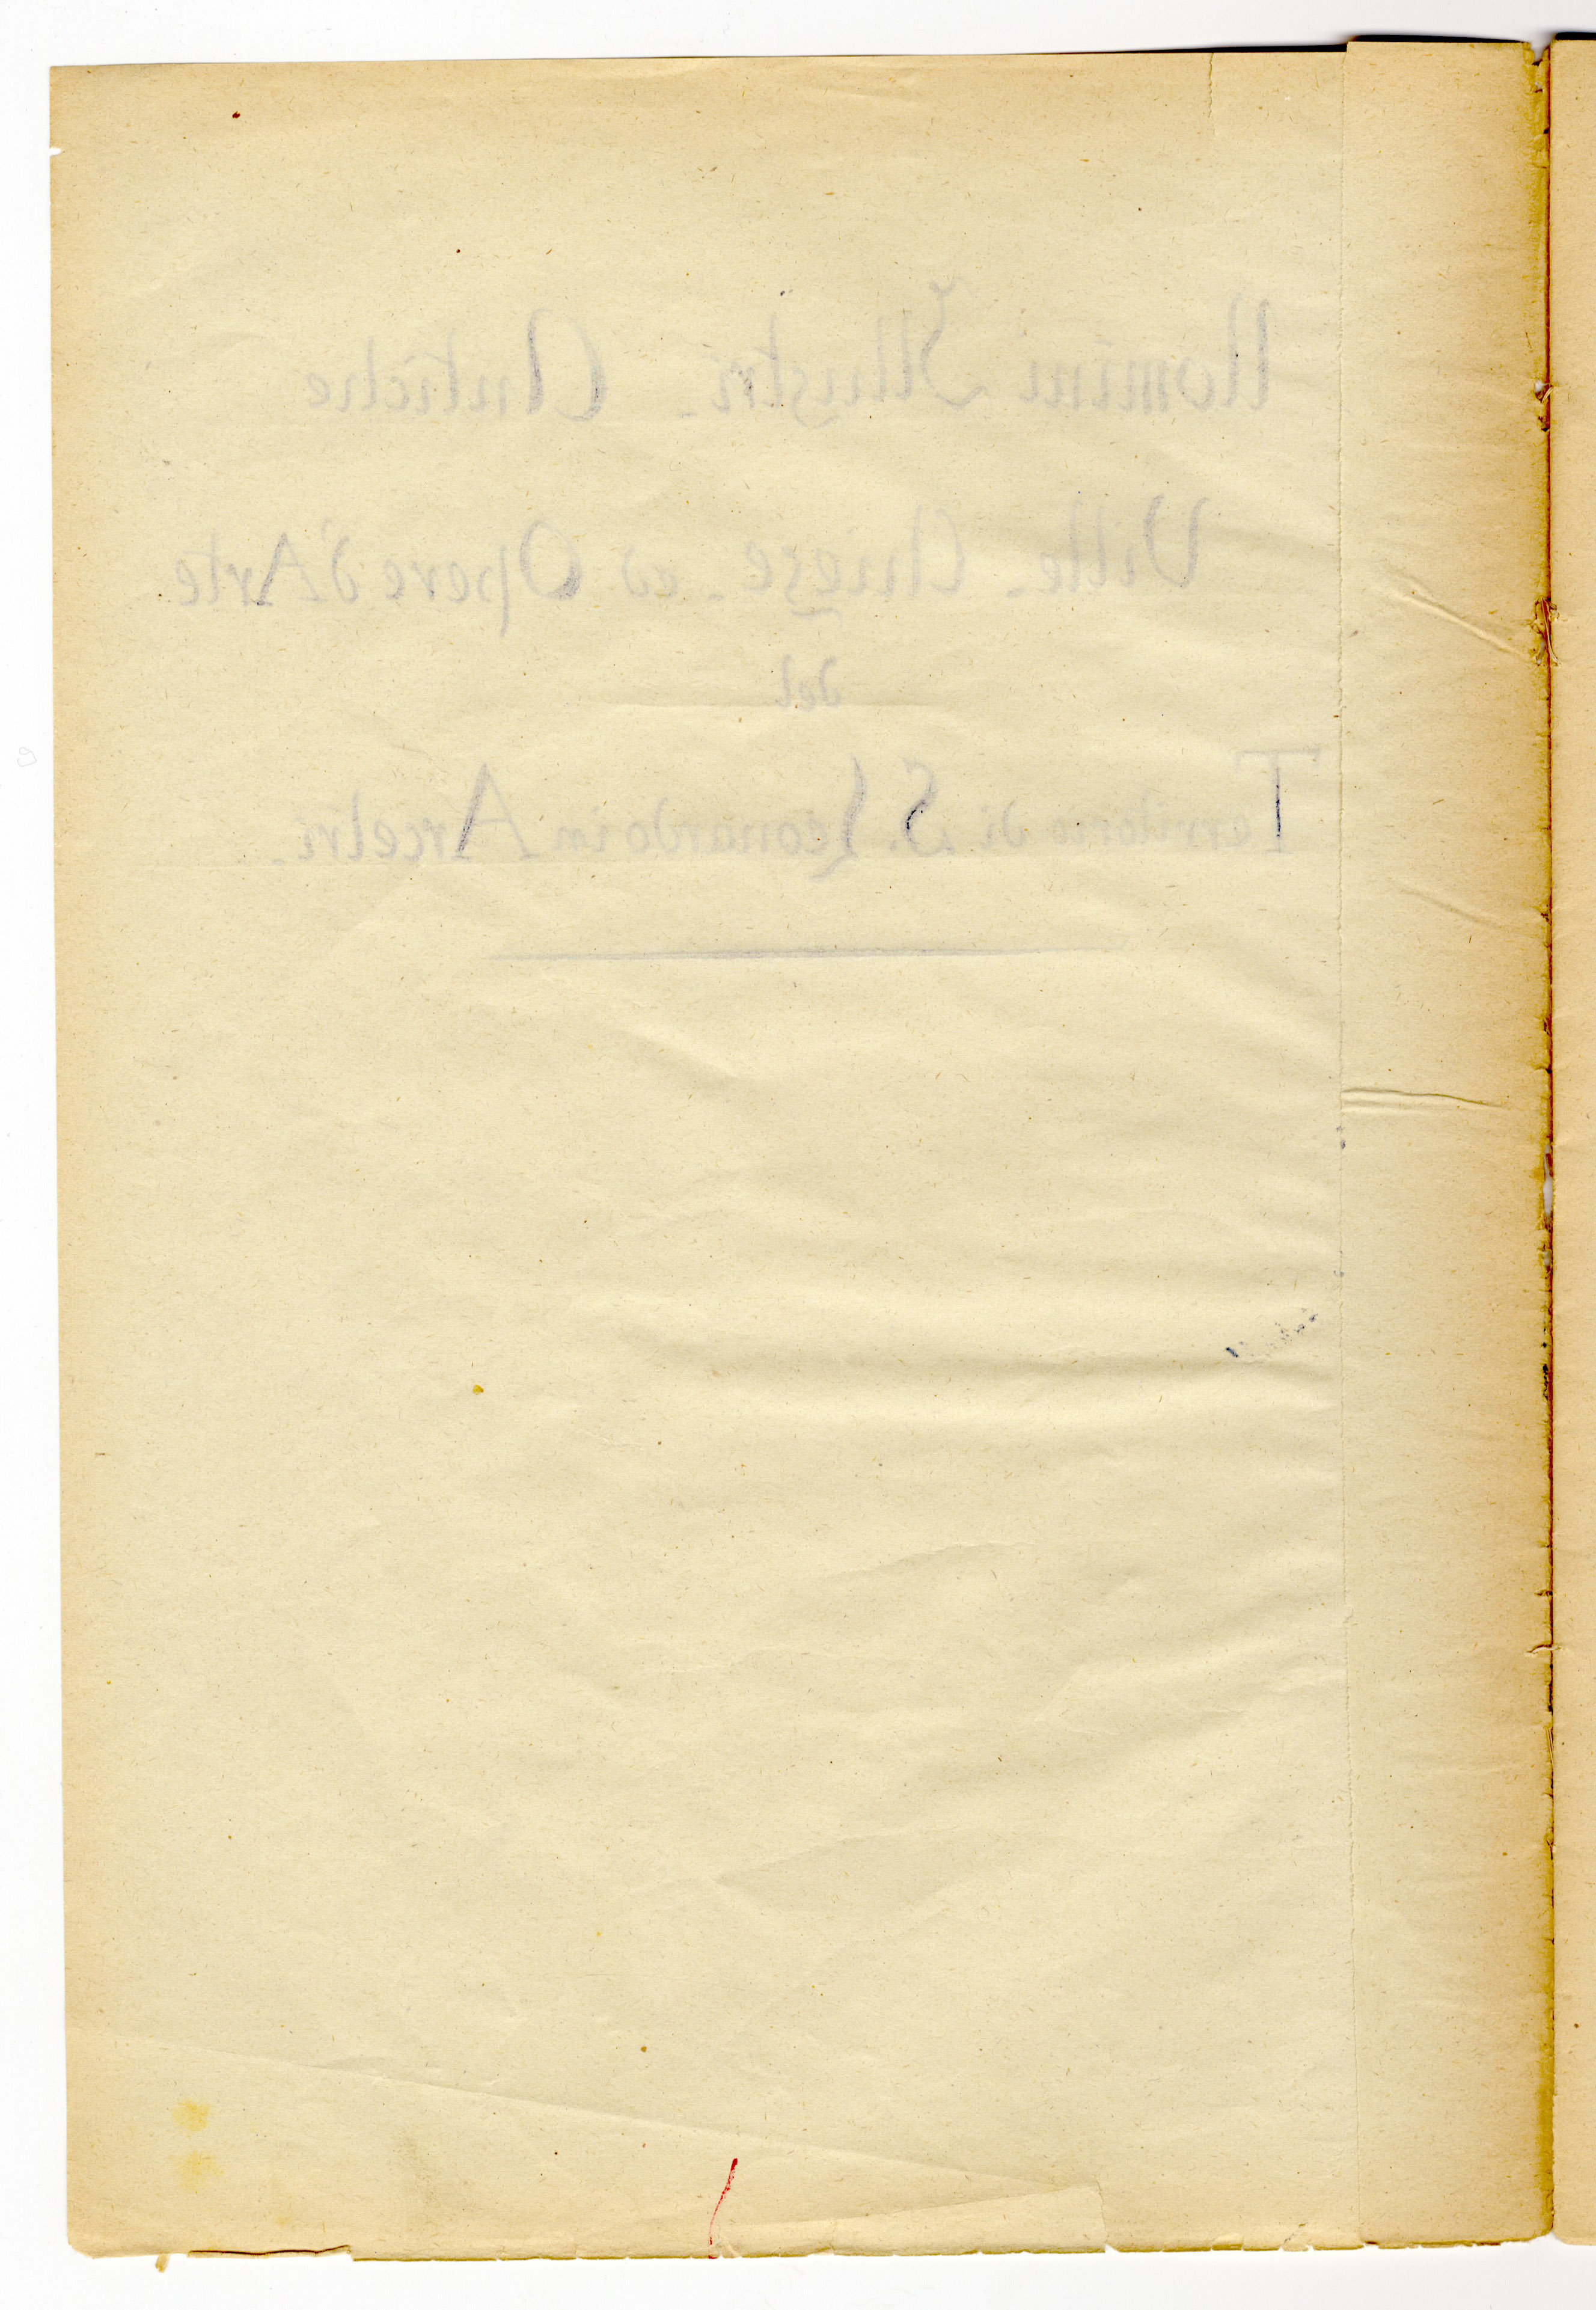 Uomini Illustri - Antiche
Ville - Chiese - ed Opere d'Arte
del
Territorio di S. Leonardo in Arcetri -